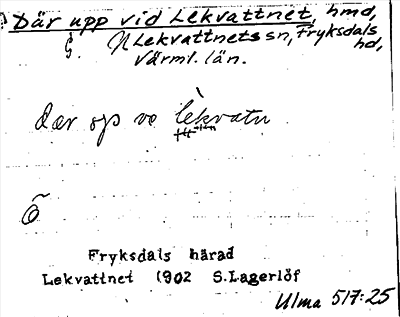 Där upp vid Lekvattnet, hmd,
Lekvattnets sn, Fryksdals
hd,
Värml. län.
dær op ve lèkvatn
Fryksdals härad
Lekvattnet 1902 S.Lagerlöf
Ulma 517:25